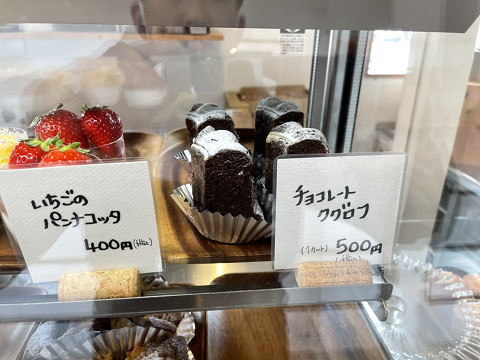 いちごの
パンナコッタ
400円(税込)
チョコレート
クグロフ
(1カット) 500円(税込)